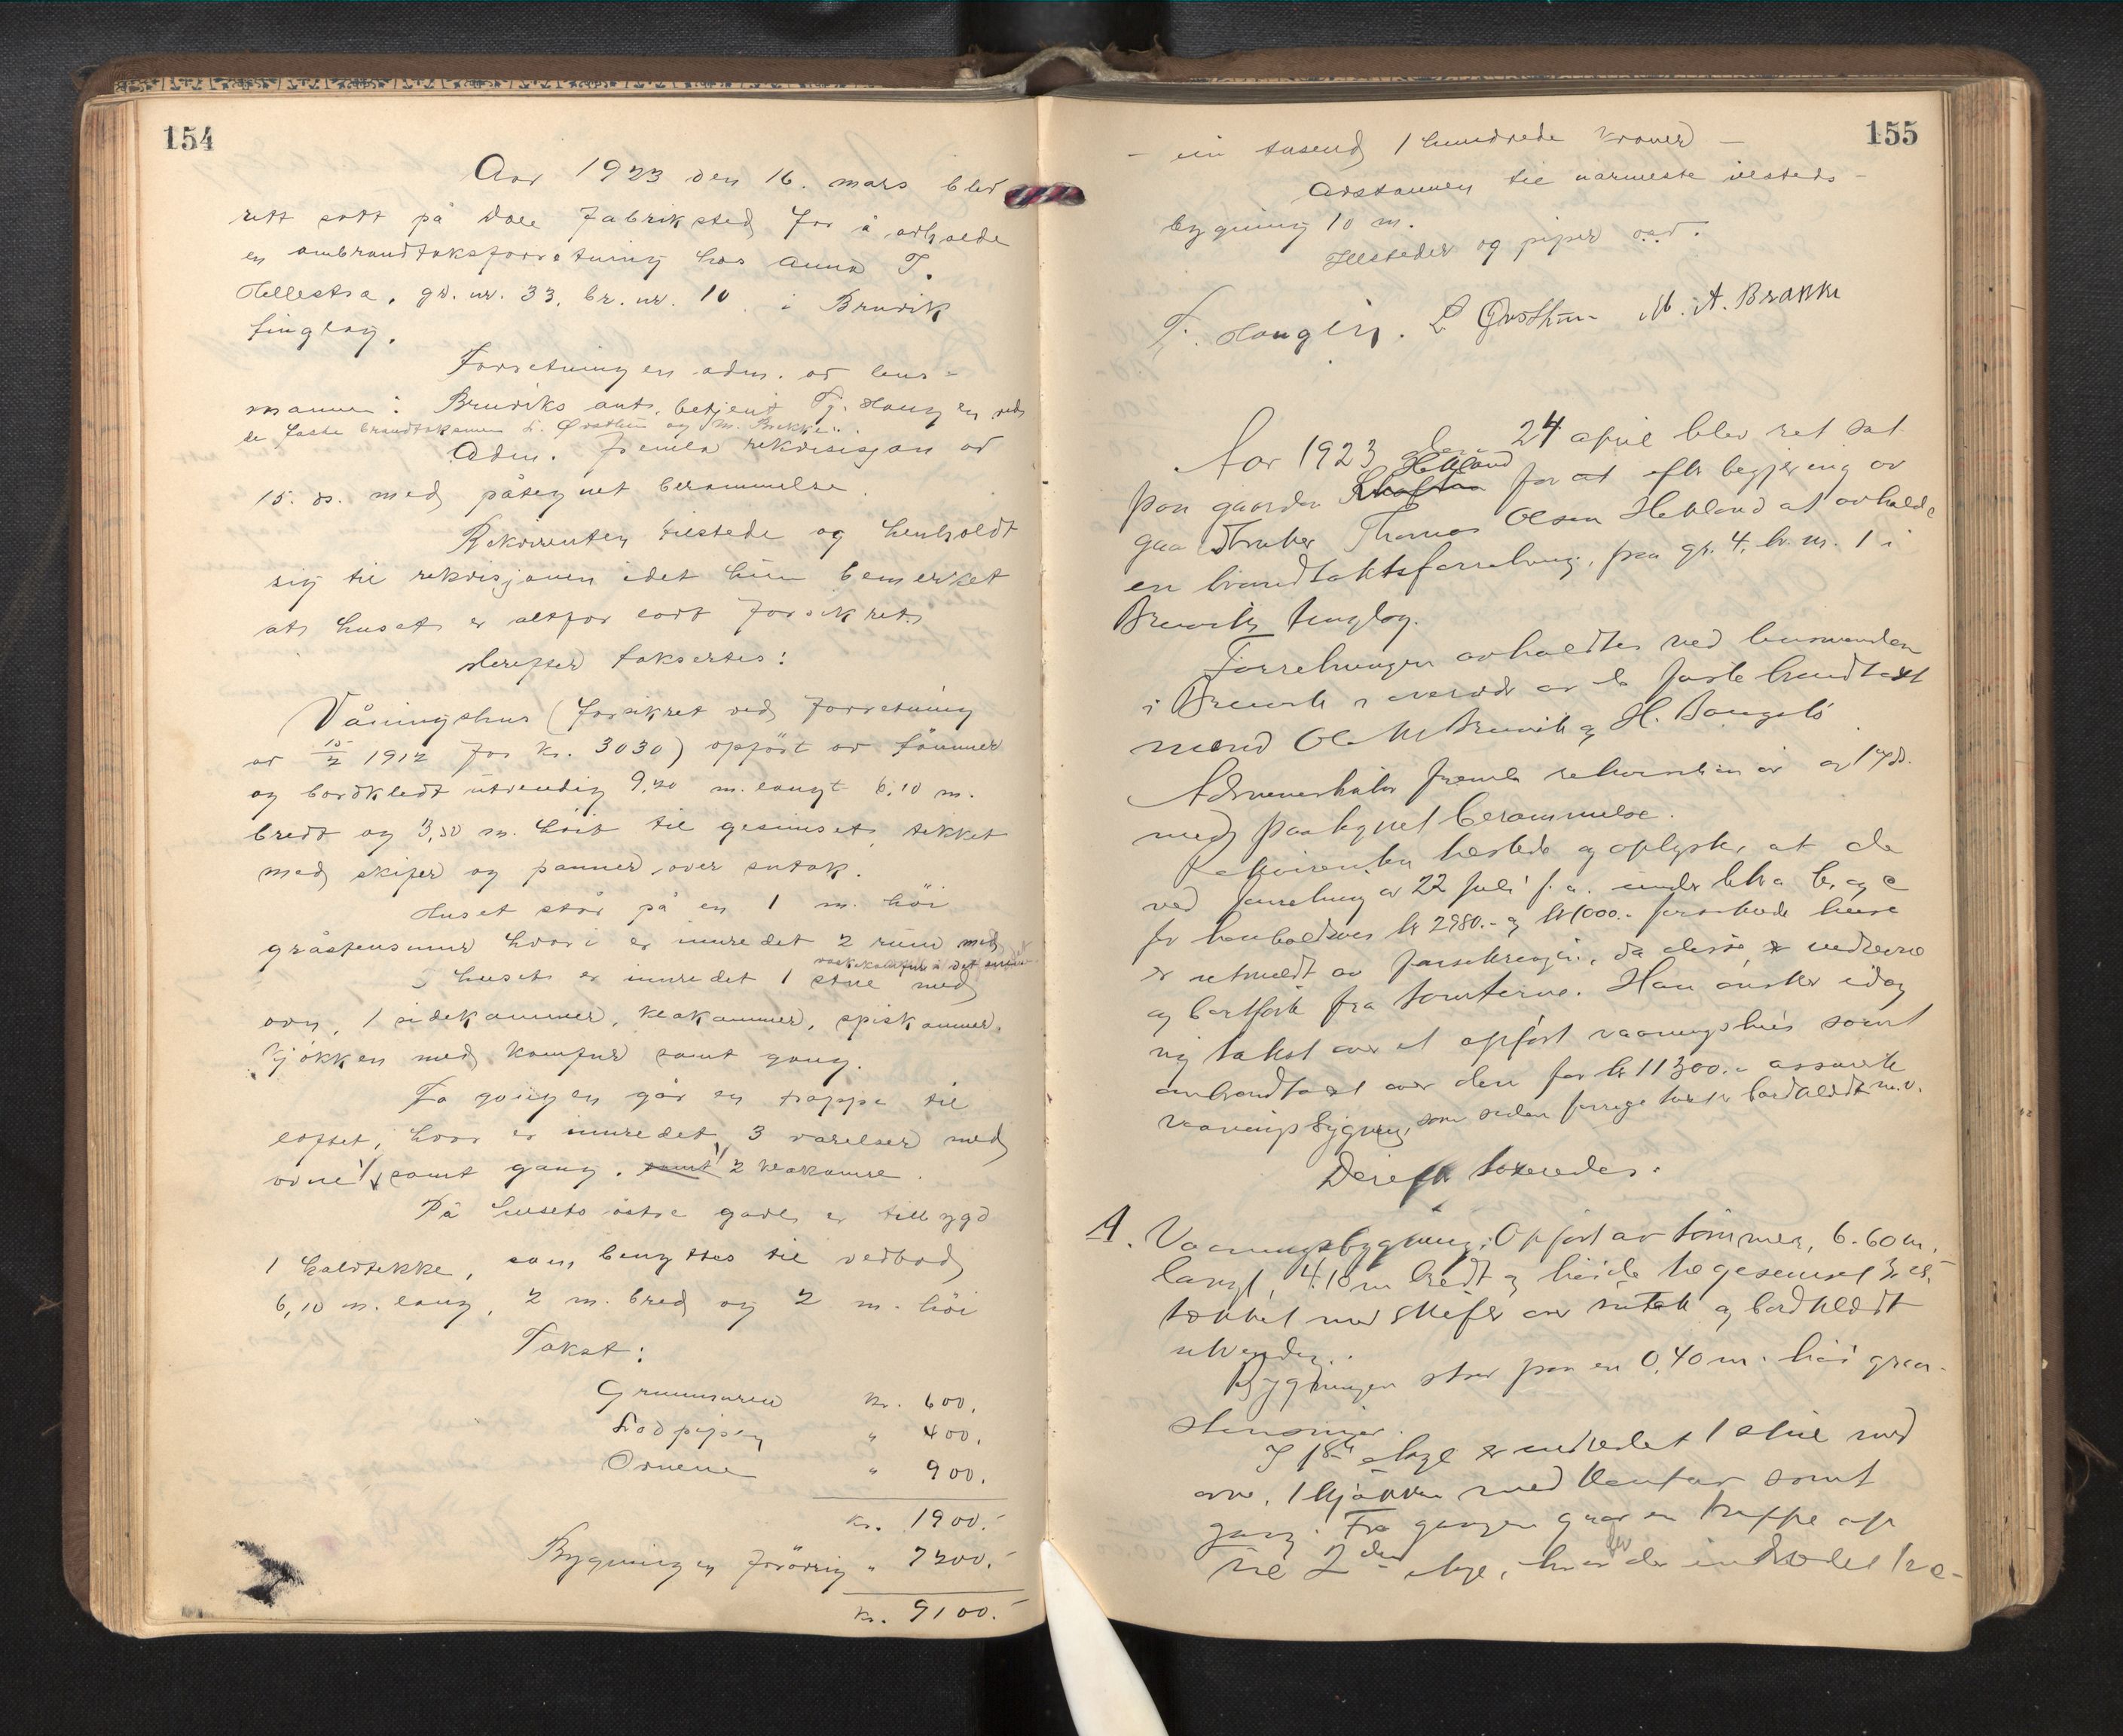 154
Aar 1923 den 16. mars blev
rett satt på Dale Fabriksted for å avholde
en ombrandtaksforretning hos Anna T.
Hellestra, gr. nr. 33, br. nr. 10 i Bruvik
tinglag.
Forretningen adm. av lens-
mannen i Bruviks aut. betjent Fr. Haugen ved
de faste brandtaksmenn L. Øvsthun og M. Brekke.
Adm. fremla rekvisisjon av
15. ds. med påtegnet berammelse.
Rekvirenten tilstede og henholdt
sig til rekvisisjonen idet hun bemerket
at huset er altfor lavt forsikret.
Derefter taksertes:
Våningshus (forsikret ved forretning
av 15/2 1912 for kr. 3030) opført av tømmer
og bordkledt utvendig 9,20 m. langt 6,10 m.
bredt og 3,50 m. høit til gesimset, tekket
med skifer og panner over sutak.
Huset står på en 1 m. høi
gråstensmur hvori er innredet 2 rum med
vaskekomfur i det ene
I huset er innredet 1 stue med
ovn, 1 sidekammer, klækammer, spiskammer,
kjøkken med komfur samt gang.
Fra gangen går en trappe til
loftet, hvor er innredet 3 værelser med
ovne, samt gang. samt 2 klækamre.
På husets østre gavl er tilbygd
1 halvtekke, som benyttes til vedbod
6,10 m. lang, 2 m. bred og 2 m. høi
Takst:
Grunnmuren kr. 600.
Lodpipen " 400.
Ovnene " 900.
kr. 1900.-
Bygningen forøvrig " 7200.-
kr. 9100.-
155
- ni tusend 1 hundrede kroner -
Avstannen til nærmeste ilsteds-
bygning 10 m.
Ildsteder og piper
F. Haugen. L Øvsthun M. A. Brekke
Aar 1923 den 24 april blev ret sat
paa gaarden Helland for at efter begjæring av
gaardbruker Thomas Olsen Helland at avholde
en brandtakstforretning, paa gr. 4, br. nr. 1 i
Bruvik tinglag.
Forretningen avholdtes ved lensmanden
i Bruvik i overvær av de faste brandtakst
mænd Ole M Bruvik og H. Bougstö
Administrator fremla rekvisition av ds.
med paategnet berammelse.
Rekvirenten tilstede og oplyste at de
ved forretning av 22 juli f. a. under litra b. og c
for henholdsvis kr 2980.- og kr 1000.- forsikrede huse
er utmeldt av forsikringen, da disse er nedrevne
og bortført fra tomterne. Han ønsker idag
ny takst over et opført vaaningshus samt
ombrandtakst over den for kr 11300.- assurerte
vaaningsbygning, som siden forrige takst er bordklædt m.v.
Derefter takseredes:
A. Vaaningsbygning: Opført av tømmer, 6.60 m.
langt, 4.10 m bredt og høide til gesimset
tækket med skifer over sutak og bordklædt
utvendig.
Bygningen staar paa en 0,40 m. høi graa-
stensmur.
I 1ste etage er indredet 1 stue med
ovn, 1 kjøkken med komfur samt
gang. Fra gangen gaar en trappe op
til 2den etage, hvor der er indredet